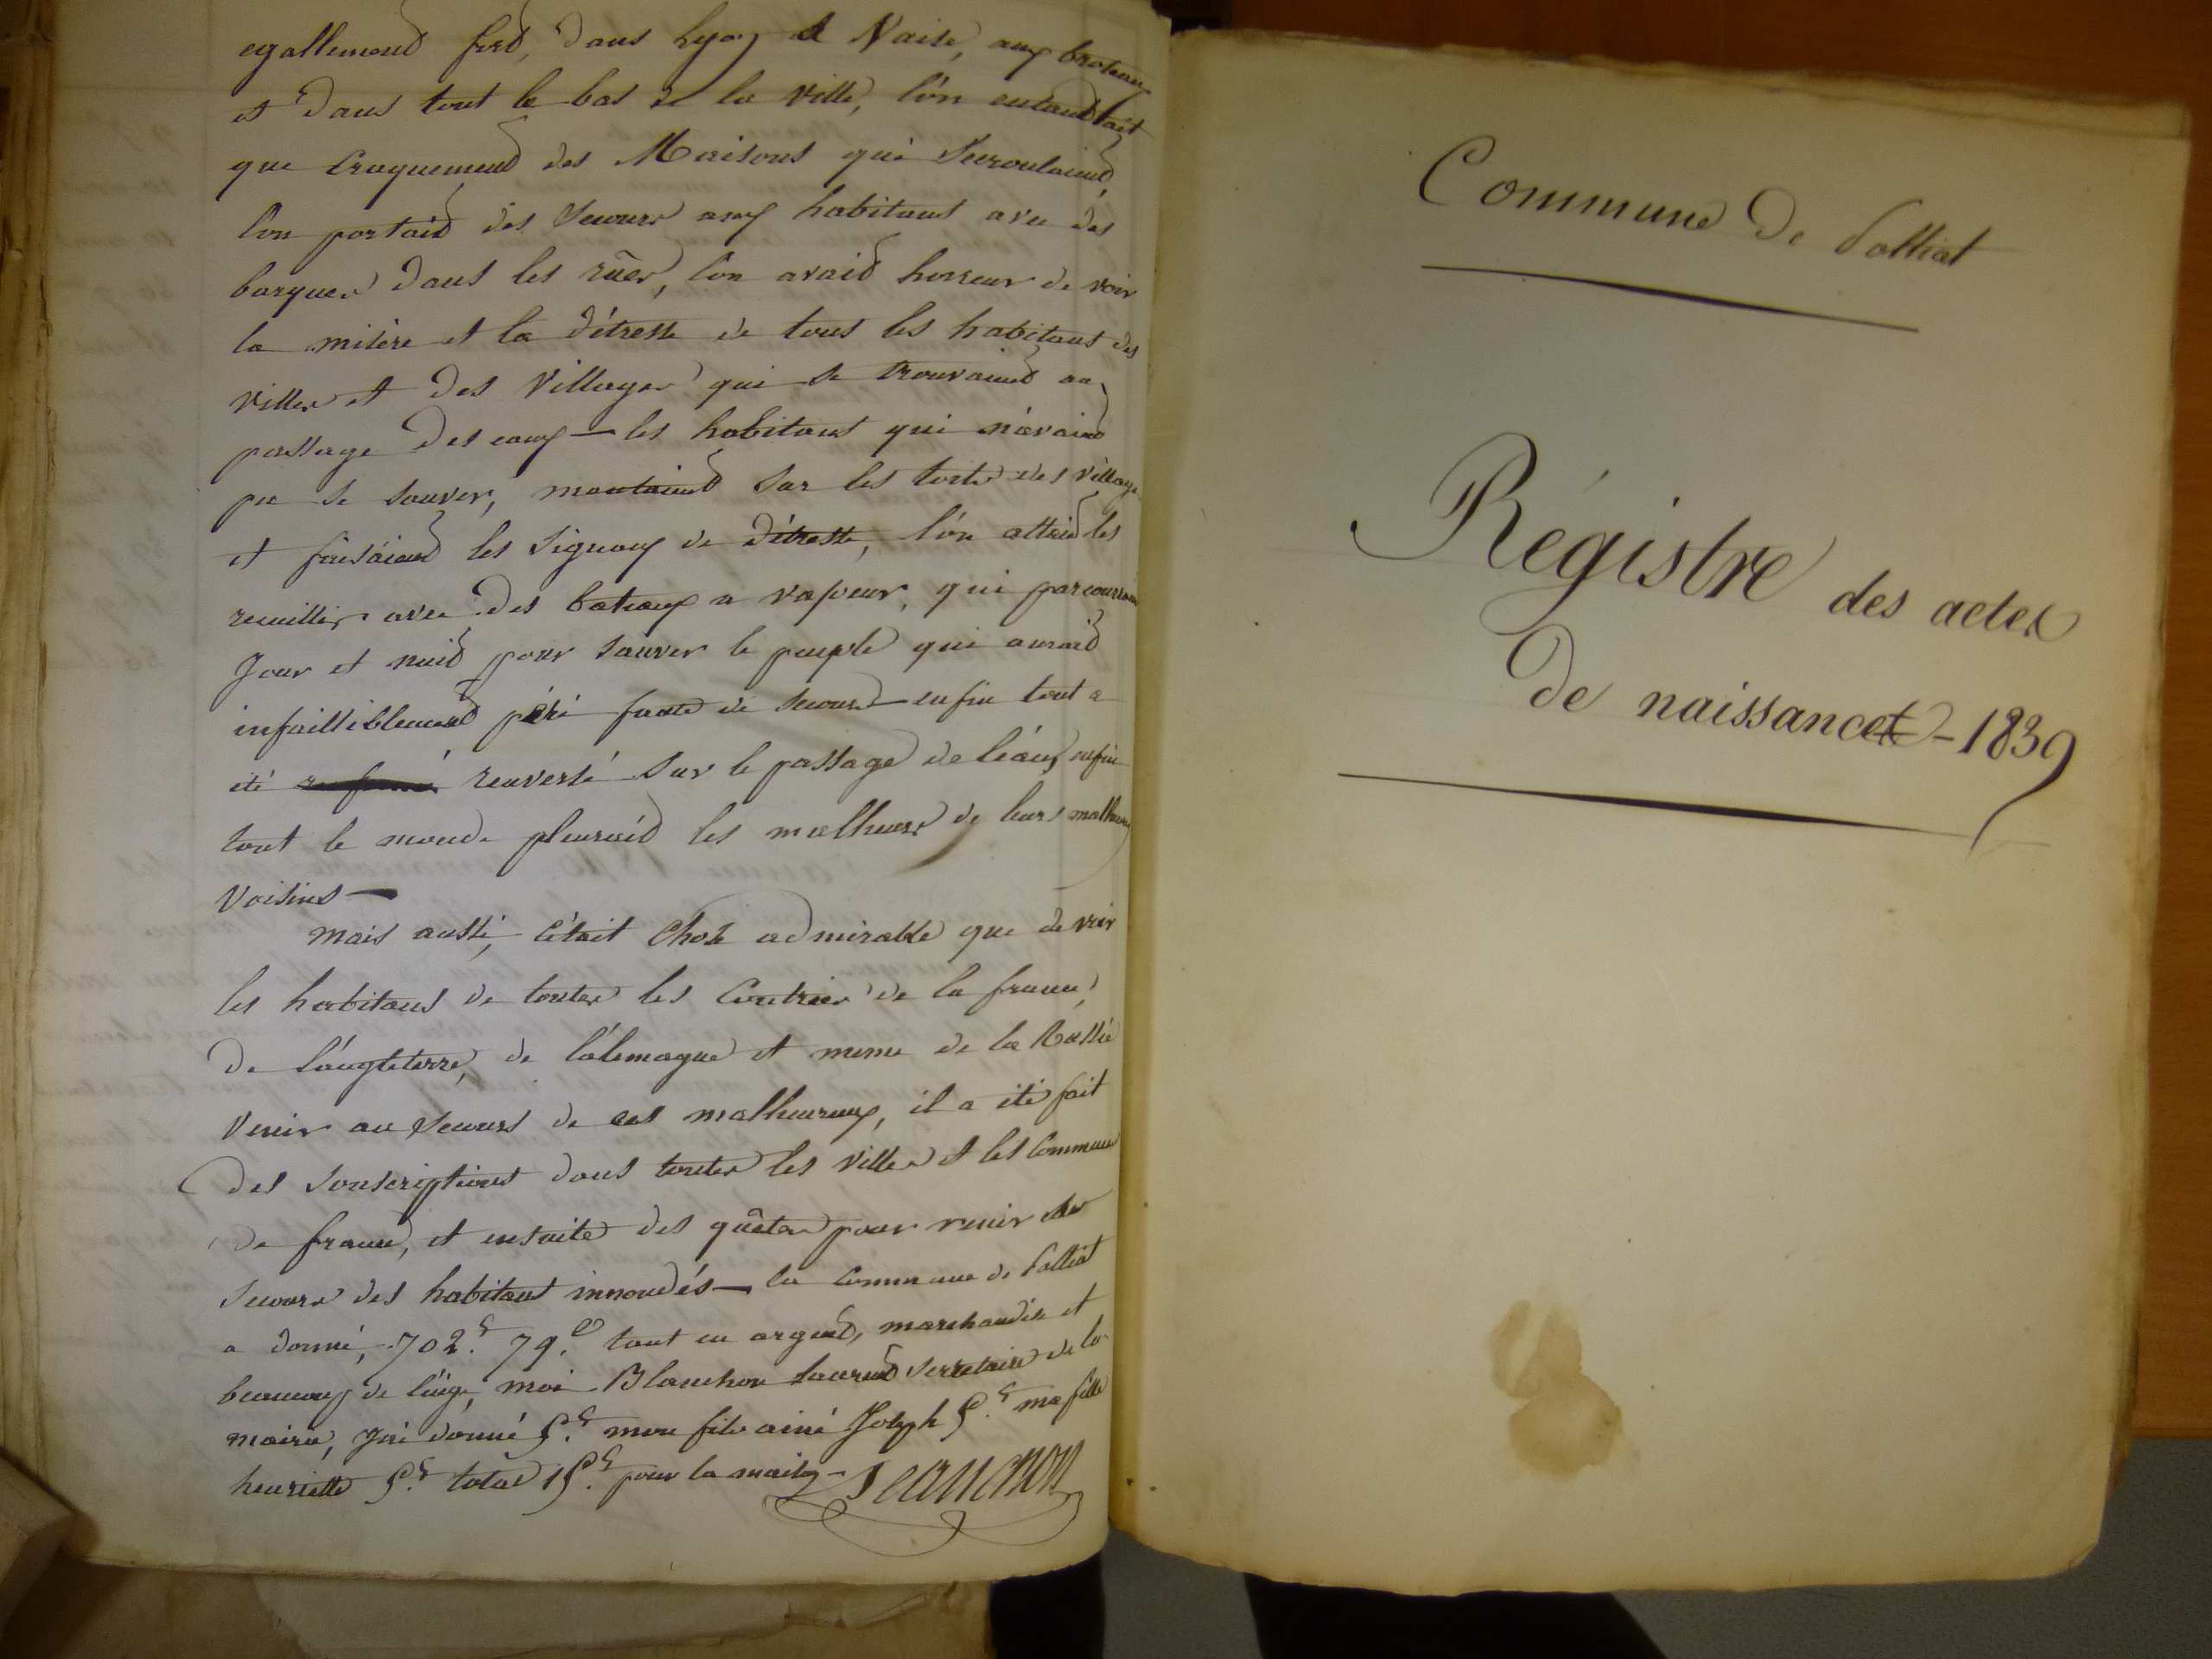 egallement fred, dans Lyon et Vaise, aux broteaux
et dans tout le bas de la ville, l'ón entendait
que craquement des Maisons qui Secroulaient,
l'on portait des Secours aux habitans avec des
barques dans les rûes, l'on avait horreur de voir
la misère et la détresse de tous les habitans des
villes et des Villages qui se trouvaient au
passage des eaux — les habitans qui n'avaint
pu se sauver, montaient sur les toits des village
et faisáient les Signaux de détresse, l'ón allait les
receuillir avec des bateaux a vapeur, qui parcouraient
Jour et nuit pour sauver le peuple qui aurait
infailliblement péri faute de secours — enfin tout a
été renversé sur le passage de leáux, enfin
tout le monde pleurait les malheurs de leurs malheureux
Voisins —
Mais aussi, c'était Chose admirable que de voir
les habitans de toutes les Contrées de la france,
de l'ángleterre, de l'alemagne et meme de la Russie
Venir au Secours de ces malheureux, il a été fait
des Souscriptions dans toutes les Villes et les Communes
de france, et ensuite des quêtes pour venir au
Secours des habitans innondés — la Commune de Polliat
a donné, 702.f 79.c tant en argent, marchandise et
beaucoup de linge, moi Blanchon Laurent Secretaire de la
mairie, J'ai donné 5.f mon fils ainé Joseph 5.f ma fille
henriette 5.f total 15.f pour la maison — Blanchon
Commune de Polliat
Régistre des actes
de naissances - 1839